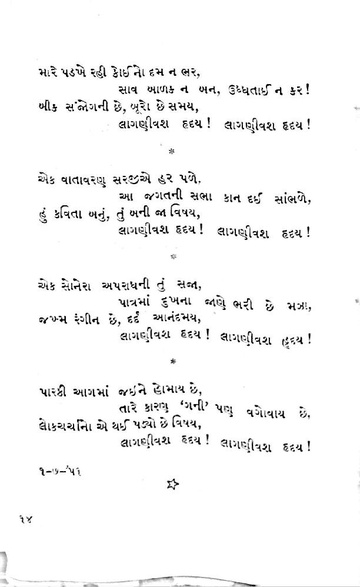 મારે પડખે રહી કોઈનો દમ ન ભર,
સાવ બાળક ન બન, ઉધ્ધતાઈ ન કર!
બીક સંજોગની છે, બૂરો છે સમય,
લાગણીવશ હૃદય! લાગણીવશ હૃદય!
*
એક વાતાવરણ સરજીએ હર પળે,
આ જગતની સભા કાન દઈ સાંભળે,
હું કવિતા બનું, તું બની જા વિષય,
લાગણીવશ હૃદય! લાગણીવશ હૃદય!
*
એક સોનેરા અપરાધની તું સજા,
પાત્રમાં દુખના જાણે ભરી છે મઝા,
જખ્મ રંગીન છે, દર્દ આનંદમય,
લાગણીવશ હૃદય! લાગણીવશ હૃદય!
*
પારકી આગમાં જઈને હોમાય છે,
તારે કારણ 'ગની' પણ વગોવાય છે,
લોકચર્ચાનો એ થઈ પડ્યો છે વિષય,
લાગણીવશ હૃદય! લાગણીવશ હૃદય!
૧-૭-'૫૧
૧૪